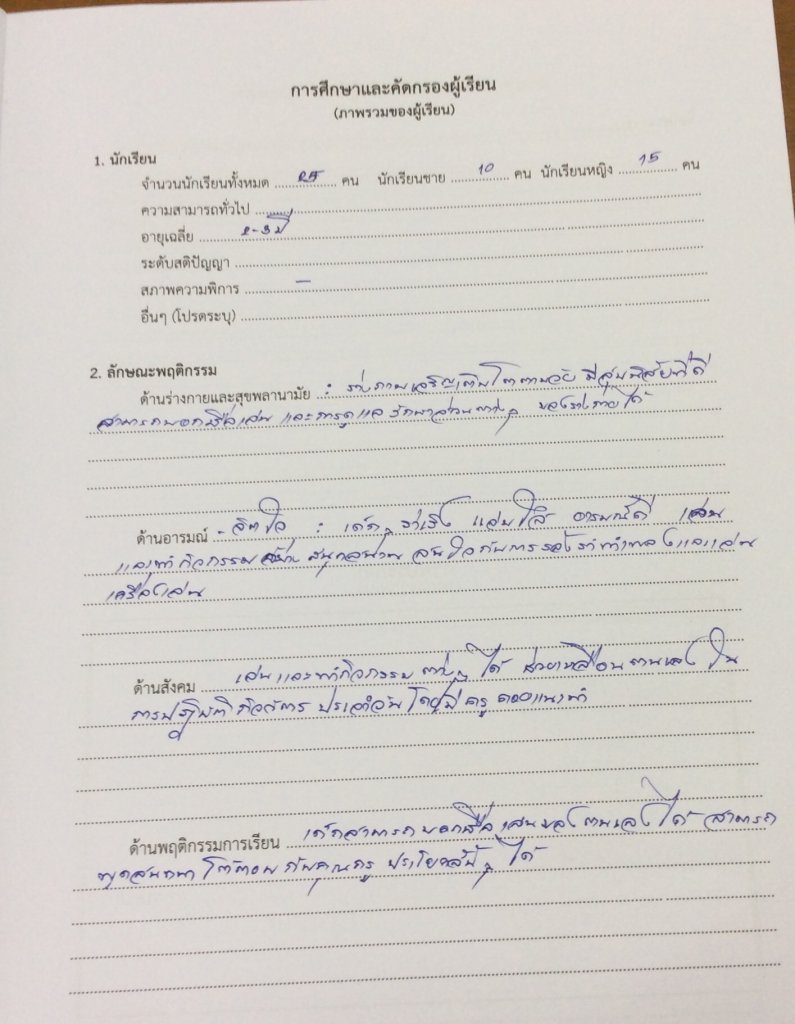 การศึกษาและคัดกรองผู้เรียน
(ภาพรวมของผู้เรียน)
1. นักเรียน
จำนวนนักเรียนทั้งหมด 25 คน นักเรียนชาย 10 คน นักเรียนหญิง 15 คน
ความสามารถทั่วไป
อายุเฉลี่ย 2-3 ปี
ระดับสติปัญญา
สภาพความพิการ –
อื่นๆ (โปรดระบุ)
2. ลักษณะพฤติกรรม
ด้านร่างกายและสุขพลานามัย : ร่างกายเจริญเติบโตตามวัย มีสุขนิสัยที่ดี
สามารถบอกชื่อเล่น และการดูแลรักษาส่วนต่างๆ ของร่างกายได้
ด้านอารมณ์ - จิตใจ : เด็กๆ ร่าเริง แจ่มใส อารมณ์ดี เล่น
และทำกิจกรรมอย่างสนุกสนาน สนใจกับการร้องรำทำเพลงและเล่น
เครื่องเล่น
ด้านสังคม เล่นและทำกิจกรรมต่างๆ ได้ ช่วยเหลือตนเองใน
การปฏิบัติกิจวัตรประจำวันโดยมีครูคอยแนะนำ
ด้านพฤติกรรมการเรียน เด็กสามารถบอกชื่อเล่นของตนเองได้ สามารถ
พูดสนทนาโต้ตอบกับคุณครู ประโยคสั้นๆ ได้